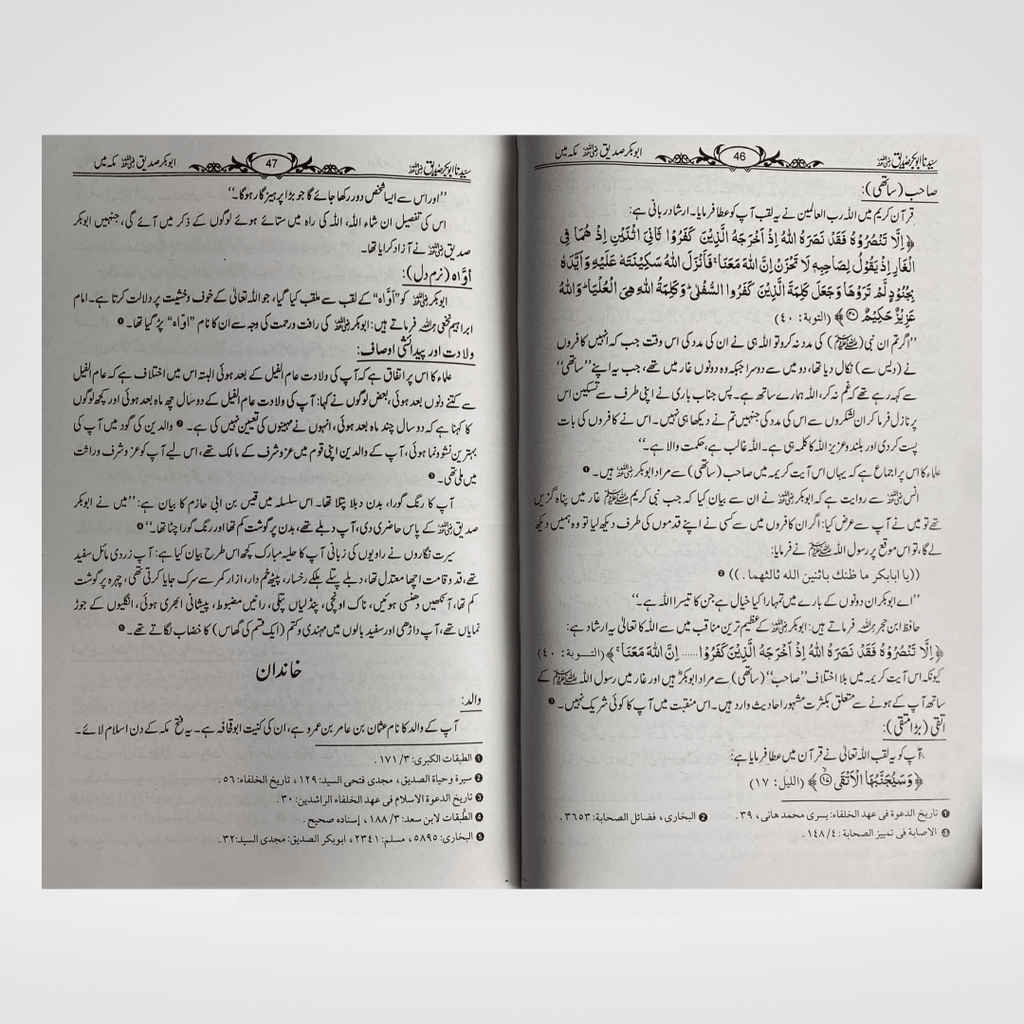 سیدنا ابوبکر صدیق رضی اللہ عنہ 46 ابوبکر صدیق رضی اللہ عنہ مکہ میں
صاحب (ساتھی):
قرآن کریم میں اللہ رب العالمین نے یہ لقب آپ کو عطا فرمایا۔ ارشاد ربانی ہے:
﴿اِلَّا تَنْصُرُوْهُ فَقَدْ نَصَرَهُ اللهُ اِذْ اَخْرَجَهُ الَّذِيْنَ كَفَرُوْا ثَانِيَ اثْنَيْنِ اِذْ هُمَا فِي
الْغَارِ اِذْ يَقُوْلُ لِصَاحِبِهٖ لَا تَحْزَنْ اِنَّ اللهَ مَعَنَا ۚ فَاَنْزَلَ اللهُ سَكِيْنَتَهٗ عَلَيْهِ وَاَيَّدَهٗ
بِجُنُوْدٍ لَّمْ تَرَوْهَا وَجَعَلَ كَلِمَةَ الَّذِيْنَ كَفَرُوا السُّفْلٰى ۭ وَكَلِمَةُ اللهِ هِيَ الْعُلْيَا ۭ وَاللهُ
عَزِيْزٌ حَكِيْمٌ ۝﴾ (التوبة: ٤٠)
’’اگر تم ان نبی (ﷺ) کی مدد نہ کرو تو اللہ ہی نے ان کی مدد کی اس وقت جب کہ انہیں کافروں
نے (دیس سے) نکال دیا تھا، دو میں سے دوسرا جبکہ وہ دونوں غار میں تھے، جب یہ اپنے ’’ساتھی‘‘
سے کہہ رہے تھے کہ غم نہ کر، اللہ ہمارے ساتھ ہے۔ پس جناب باری نے اپنی طرف سے تسکین اس
پر نازل فرما کر ان لشکروں سے اس کی مدد کی جنہیں تم نے دیکھا ہی نہیں۔ اس نے کافروں کی بات
پست کر دی اور بلند و عزیز اللہ کا کلمہ ہی ہے۔ اللہ غالب ہے، حکمت والا ہے۔‘‘
علماء کا اس پر اجماع ہے کہ یہاں اس آیت کریمہ میں صاحب (ساتھی) سے مراد ابوبکر رضی اللہ عنہ ہیں۔ ❶
انس رضی اللہ عنہ سے روایت ہے کہ ابوبکر رضی اللہ عنہ نے ان سے بیان کیا کہ جب نبی کریم ﷺ غار میں پناہ گزیں
تھے تو میں نے آپ سے عرض کیا: اگر ان کافروں میں سے کسی نے اپنے قدموں کی طرف دیکھ لیا تو وہ ہمیں دیکھ
لے گا، تو اس موقع پر رسول اللہ ﷺ نے فرمایا:
((يا ابابكر ما ظنك باثنين الله ثالثهما .)) ❷
’’اے ابوبکر ان دونوں کے بارے میں تمہارا کیا خیال ہے جن کا تیسرا اللہ ہے۔‘‘
حافظ ابن حجر رحمہ اللہ فرماتے ہیں: ابوبکر رضی اللہ عنہ کے عظیم ترین مناقب میں سے اللہ کا تعالیٰ یہ ارشاد ہے:
﴿اِلَّا تَنْصُرُوْهُ فَقَدْ نَصَرَهُ اللهُ اِذْ اَخْرَجَهُ الَّذِيْنَ كَفَرُوْا...... اِنَّ اللهَ مَعَنَا ۚ﴾ (التوبة: ٤٠)
کیونکہ اس آیت کریمہ میں بلا اختلاف ’’صاحب‘‘ (ساتھی) سے مراد ابوبکرؓ ہیں اور غار میں رسول اللہ ﷺ کے
ساتھ آپ کے ہونے سے متعلق بکثرت مشہور احادیث وارد ہیں۔ اس منقبت میں آپ کا کوئی شریک نہیں۔ ❸
اتقی (بڑا متقی):
آپ کو یہ لقب اللہ تعالیٰ نے قرآن میں عطا فرمایا ہے:
﴿وَسَيُجَنَّبُهَا الْاَتْقَى ۝﴾ (الليل: ١٧)
❶ تاريخ الدعوة فى عهد الخلفاء: يسرى محمد هانى، ٣٩. ❷ البخارى، فضائل الصحابة: ٣٦٥٣.
❸ الاصابة فى تمييز الصحابة: ٤/١٤٨.
سیدنا ابوبکر صدیق رضی اللہ عنہ 47 ابوبکر صدیق رضی اللہ عنہ مکہ میں
’’اور اس سے ایسا شخص دور رکھا جائے گا جو بڑا پرہیز گار ہوگا۔‘‘
اس کی تفصیل ان شاء اللہ، اللہ کی راہ میں ستائے ہوئے لوگوں کے ذکر میں آئے گی، جنہیں ابوبکر
صدیق رضی اللہ عنہ نے آزاد کرایا تھا۔
اَوَّاہ (نرم دل):
ابوبکر رضی اللہ عنہ کو ’’اَوَّاہ‘‘ کے لقب سے ملقب کیا گیا، جو اللہ تعالیٰ کے خوف و خشیت پر دلالت کرتا ہے۔ امام
ابراہیم نخعی رحمہ اللہ فرماتے ہیں: ابوبکر رضی اللہ عنہ کی رافت و رحمت کی وجہ سے ان کا نام ’’اوّاہ‘‘ پڑ گیا تھا۔ ❶
ولادت اور پیدائشی اوصاف:
علماء کا اس پر اتفاق ہے کہ آپ کی ولادت عام الفیل کے بعد ہوئی البتہ اس میں اختلاف ہے کہ عام الفیل
سے کتنے دنوں بعد ہوئی، بعض لوگوں نے کہا: آپ کی ولادت عام الفیل کے دو سال چھ ماہ بعد ہوئی اور کچھ لوگوں
کا کہنا ہے کہ دو سال چند ماہ بعد ہوئی، انہوں نے مہینوں کی تعیین نہیں کی ہے۔ ❷ والدین کی گود میں آپ کی
بہترین نشو ونما ہوئی، آپ کے والدین اپنی قوم میں عز و شرف کے مالک تھے، اس لیے آپ کو عز و شرف وراثت
میں ملی تھی۔ ❸
آپ کا رنگ گورا، بدن دبلا پتلا تھا۔ اس سلسلہ میں قیس بن ابی حازم کا بیان ہے: ’’میں نے ابوبکر
صدیق رضی اللہ عنہ کے پاس حاضری دی، آپ دبلے تھے، بدن پر گوشت کم تھا اور رنگ گورا چٹا تھا۔‘‘ ❹
سیرت نگاروں نے راویوں کی زبانی آپ کا حلیہ مبارک کچھ اس طرح بیان کیا ہے: آپ زردی مائل سفید
تھے، قد و قامت اچھا معتدل تھا، دبلے پتلے ہلکے رخسار، پیٹھ خم دار، ازار کمر سے سرک جایا کرتی تھی، چہرہ پر گوشت
کم تھا، آنکھیں دھنسی ہوئیں، ناک اونچی، پنڈلیاں پتلی، رانیں مضبوط، پیشانی ابھری ہوئی، انگلیوں کے جوڑ
نمایاں تھے، آپ داڑھی اور سفید بالوں میں مہندی و کتم (ایک قسم کی گھاس) کا خضاب لگاتے تھے۔ ❺
خاندان
والد:
آپ کے والد کا نام عثمان بن عامر بن عمرو ہے، ان کی کنیت ابو قحافہ ہے۔ یہ فتح مکہ کے دن اسلام لائے۔
❶ الطبقات الكبرى: ٣/١٧١.
❷ سيرة وحياة الصديق، مجدى فتحى السيد: ١٢٩، تاريخ الخلفاء: ٥٦.
❸ تاريخ الدعوة الاسلام فى عهد الخلفاء الراشدين: ٣٠.
❹ الطبقات لابن سعد: ٣/١٨٨، إسناده صحيح.
❺ البخارى: ٥٨٩٥، مسلم: ٢٣٤١، ابوبكر الصديق: مجدى السيد: ٣٢.